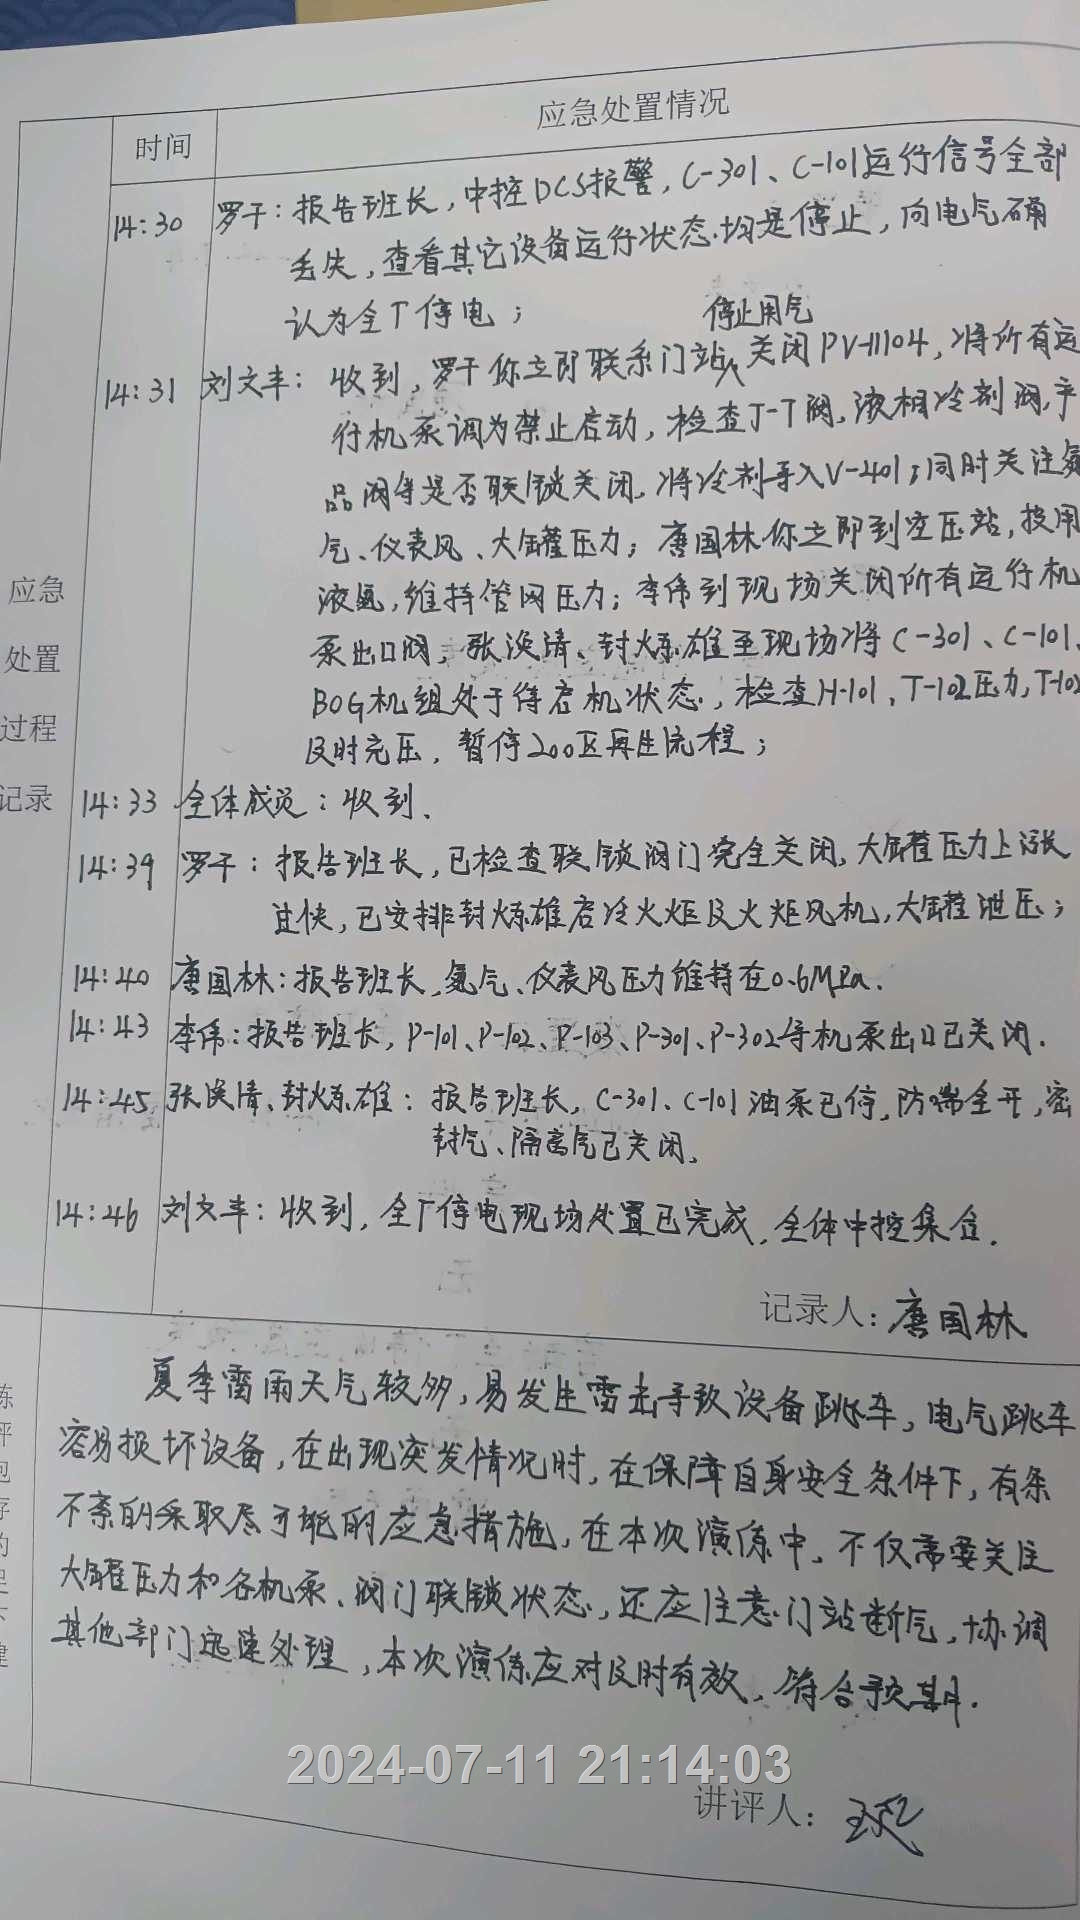 应急处置情况
时间
14:30 罗干：报告班长，中控DCS报警，C-301、C-101运行信号全部
丢失，查看其它设备运行状态均是停止，向电气确
认为全厂停电；
停止用气
14:31 刘文丰：收到，罗干你立即联系门站，关闭PV-11104，将所有运
行机泵调为禁止启动，检查J-T阀，液相冷剂阀，产
品阀等是否联锁关闭，将冷剂导入V-401；同时关注氮
气、仪表风、大罐压力；唐国林你立即到空压站，投用
液氮，维持管网压力；李伟到现场关闭所有运行机
泵出口阀，张清、封炼雄至现场将C-301、C-101、
BOG机组处于待启机状态，检查H-101，T-102压力，T-102
及时充压，暂停200区再生流程；
14:33 全体成员：收到.
14:39 罗干：报告班长，已检查联锁阀门完全关闭，大罐压力上涨
过快，已安排封炼雄启冷火炬及火炬风机，大罐泄压；
14:40 唐国林：报告班长，氮气、仪表风压力维持在0.6MPa.
14:43 李伟：报告班长，P-101、P-102、P-103、P-301、P-302等机泵出口已关闭.
14:45 张清、封炼雄：报告班长，C-301、C-101油泵已停，防喘全开，密
封气、隔离气已关闭.
14:46 刘文丰：收到，全厂停电现场处置已完成，全体中控集合.
应急
处置
过程
记录
记录人：唐国林
夏季雷雨天气较多，易发生雷击导致设备跳车，电气跳车
容易损坏设备，在出现突发情况时，在保障自身安全条件下，有条
不紊的采取尽可能的应急措施，在本次演练中，不仅需要关注
大罐压力和各机泵、阀门联锁状态，还应注意门站断气，协调
其他部门迅速处理，本次演练应对及时有效，符合预期.
2024-07-11 21:14:03
讲评人：